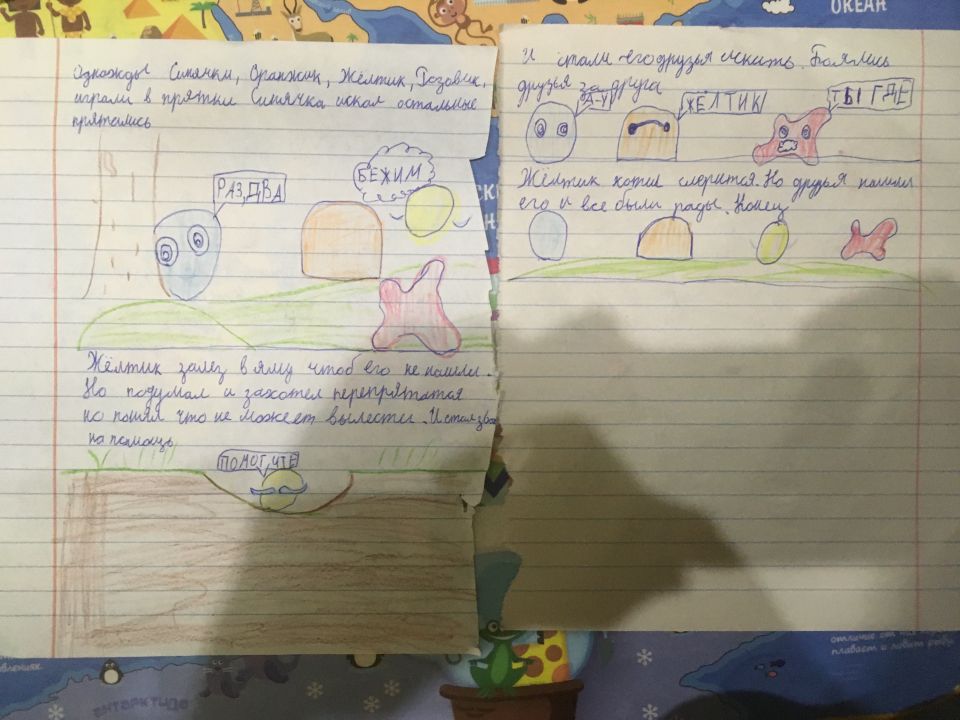 Однажды Синячки, Оранжик, Жёлтик, Розовик,
играли в прятки Синячка искал остальные
прятались
РАЗ,ДВА
БЕЖИМ
Жёлтик залез в яму чтоб его не нашли.
Но подумал и захотел перепрятатся
но понял что не может вылести. И стал зва
на помощь
ПОМОГИТЕ
И стали его друзья искать. Боялись
друзья за друга
А-У
ЖЁЛТИК
ТЫ ГДЕ
Жёлтик хотел смерится. Но друзья нашли
его и все были рады. Конец
ОКЕАН
АНТАРКТИДА
плавает и ловит рыбу